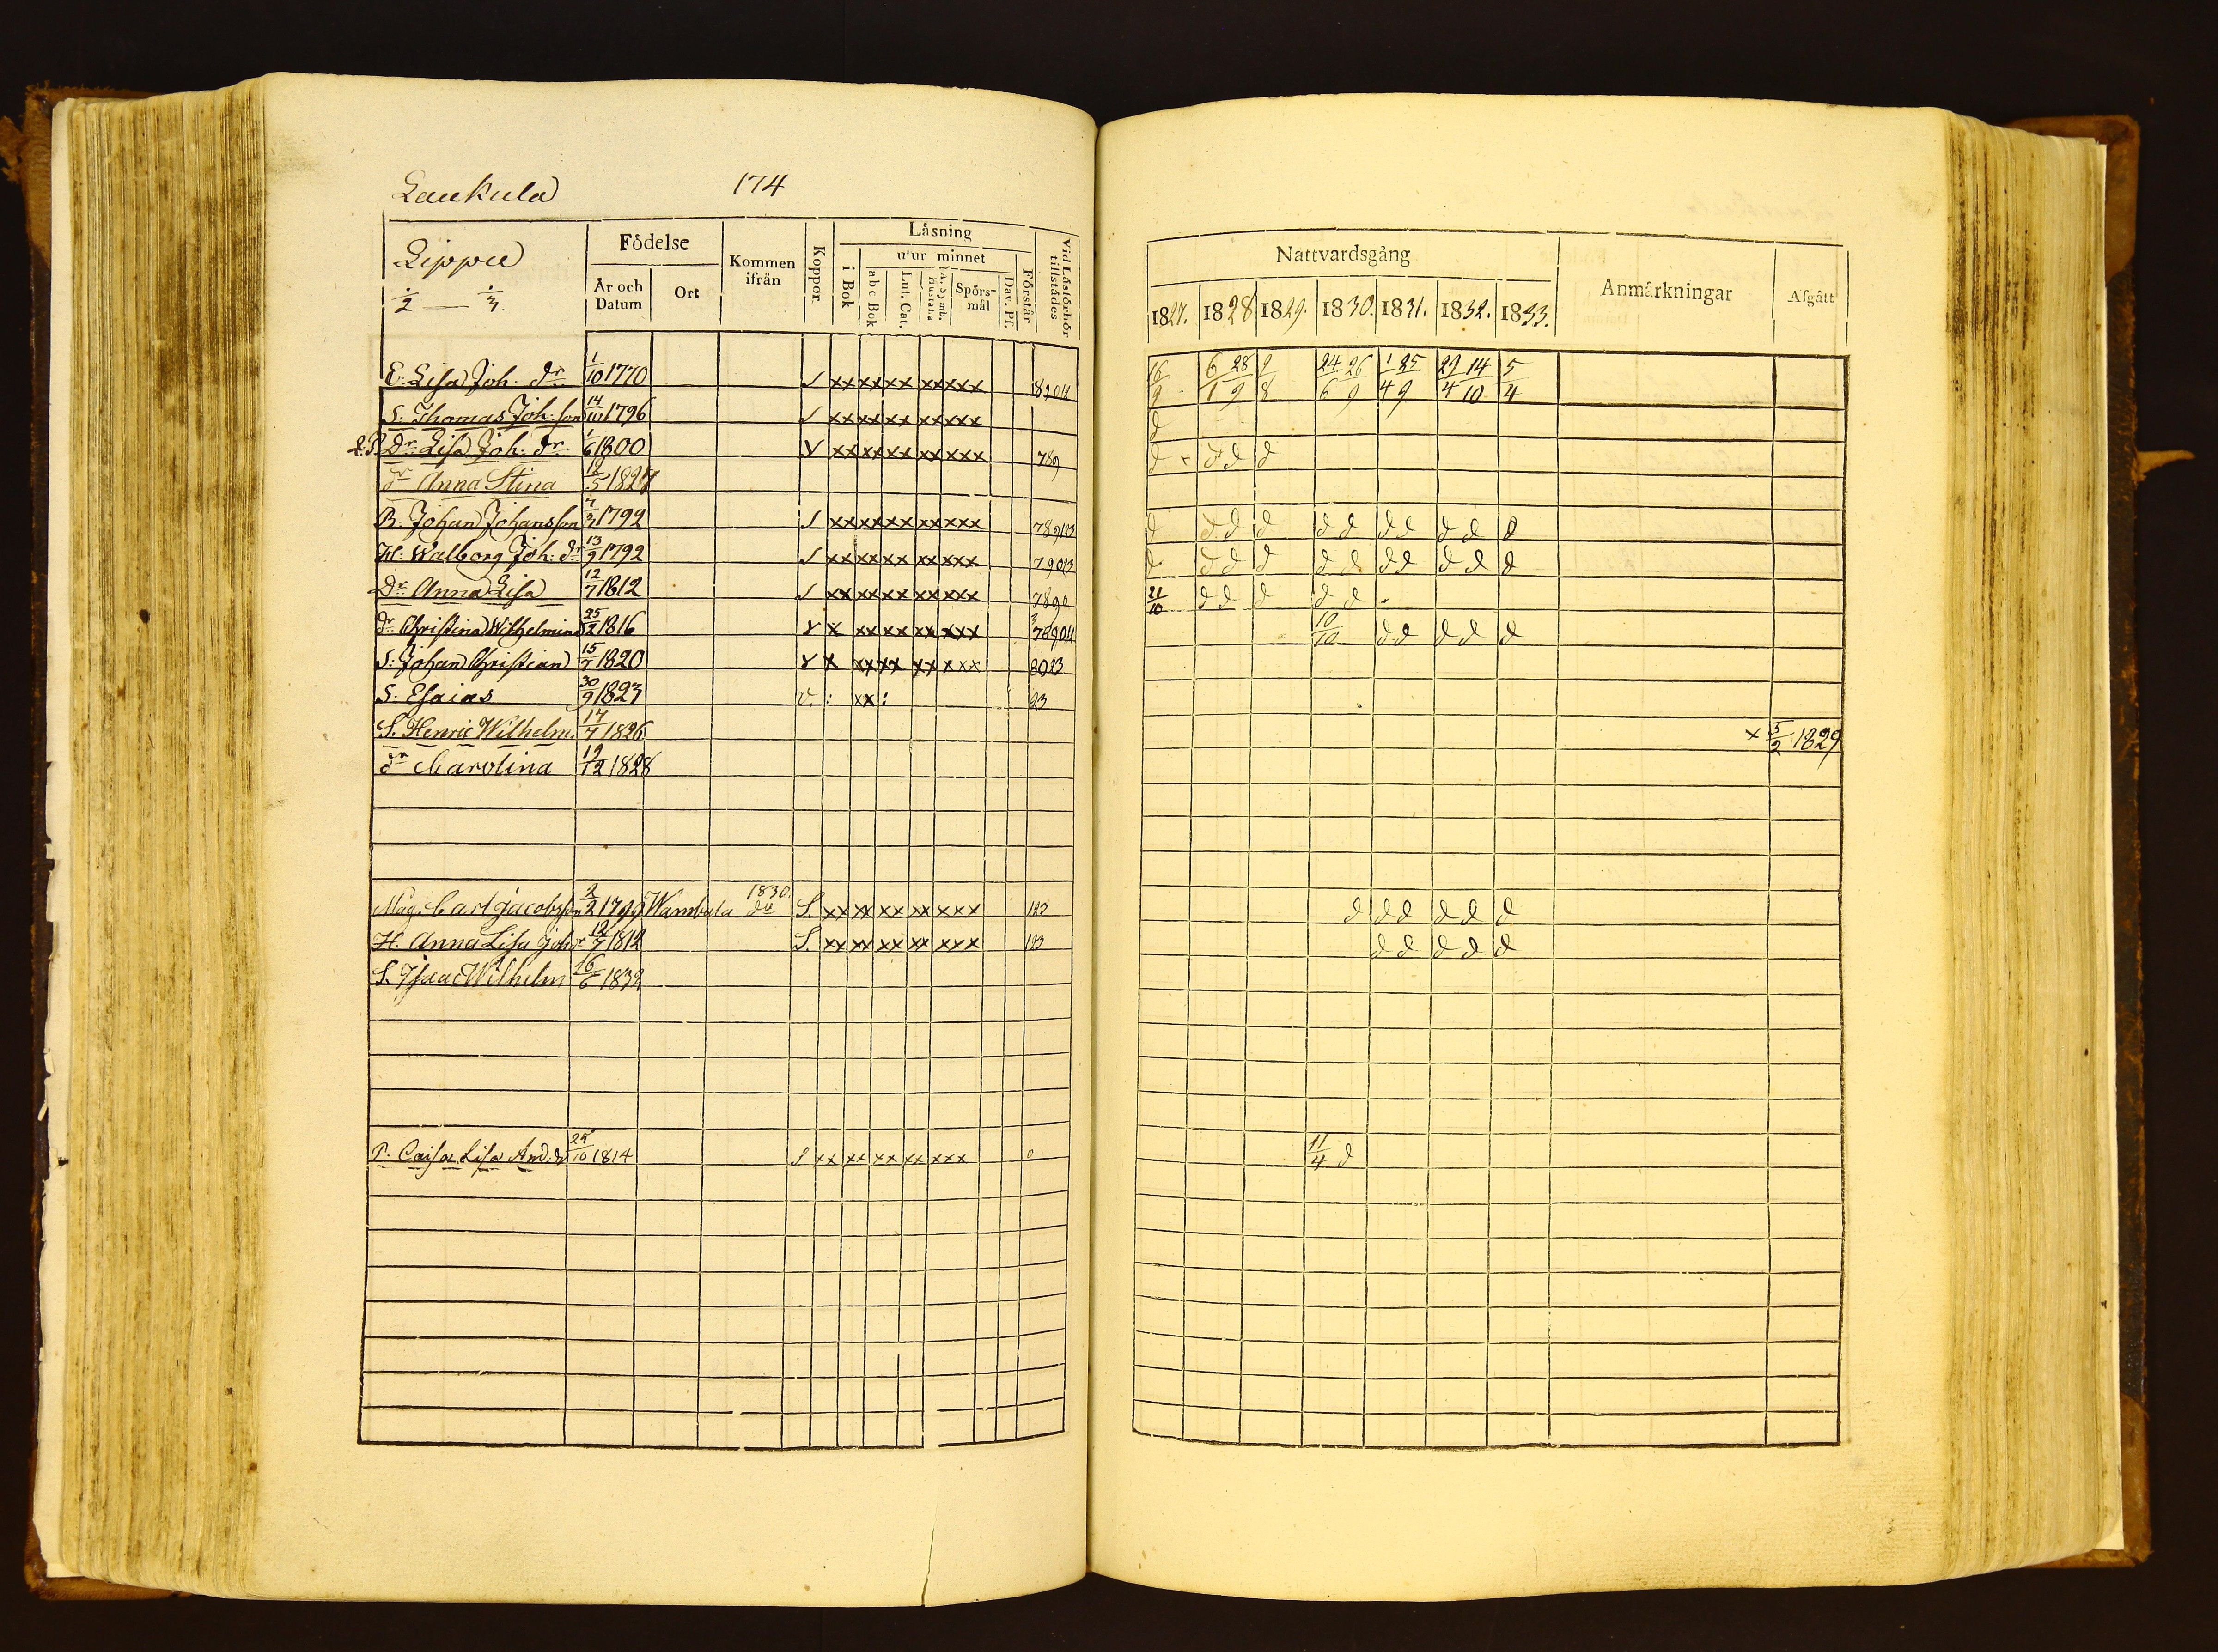 Laukula 174
Lippu
1/2 — 1/3.
Födelse
År och Datum
Ort
Kommen ifrån
Koppor.
Läsning
utur minnet
i Bok
abc Bok
Lut. Cat.
Spörs-mål
Dav. Ps.
Förstår
Vid Läsförhör tillstådes
E. Lisa Joh. dr 1/10 1770 xx xx xx xx xxx
S. Thomas Joh:son 14/10 1796 xx xx xx xx xxx
Dr Lisa Joh. dr 1/6 1800 xx xx xx xx xxx 789
dr Anna Stina 12/5 1827
B. Johan Johansson 7/3 1792 xx xx xx xx xxx 789123
H. Walborg Joh: dr 13/9 1792 xx xx xx xx xxx
Dr Anna Lisa 12/7 1812 xx xx xx xx xxx 7890
dr Christina Wilhelmina 25/2 1816 x xx xx xx xxx
S. Johan Christian 15/7 1820 x xx xx xx xxx 8023
S. Esaias 30/9 1823 v. : xx : 23
S. Henric Wilhelm. 17/7 1826
dr Carolina 19/12 1828
Måg. Carl Jacobsson 2/2 1799 1830. S. xx xx xx xx xxx 123
H. Anna Lisa Joh dr 12/7 1812 S. xx xx xx xx xxx 123
S. Isaac Wilhelm 16/6 1832
P. Caisa Lisa And. dr 10 1814 xx xx xx xx xxx 0
Nattvardsgång
Anmärkningar
Afgått
1827. 1828 1829. 1830. 1831. 1832. 1833.
16/9 6/1 28/9 9/8 24/6 26/9 1/4 25/9 29/4 14/10 5/4
d
d x d d d
d d d d d d d d d d d
d d d d d d d d d d d
21/10 d d d d d
10/10 d d d d d
x 5/2 1829
d d d d d d
d d d d d
11/4 d